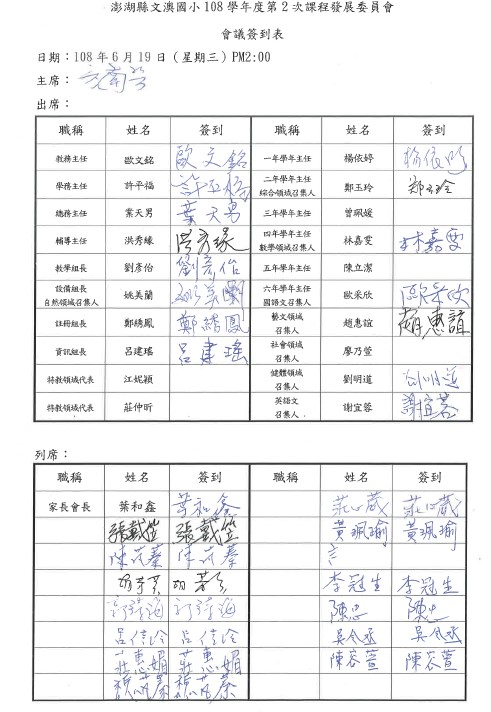 澎湖縣文澳國小 108 學年度第 2 次課程發展委員會
會議簽到表
日期：108 年 6 月 19 日（星期三）PM2:00
主席：
出席：
職稱 姓名 簽到 職稱 姓名 簽到
教務主任 歐文銘 歐文銘 一年學年主任 楊依婷
學務主任 許平福 許平福 二年學年主任 綜合領域召集人 鄭玉玲 鄭玉玲
總務主任 葉天男 葉天男 三年學年主任 曾珮媛
輔導主任 洪秀緣 洪秀緣 四年學年主任 數學領域召集人 林嘉雯 林嘉雯
教學組長 劉彥怡 劉彥怡 五年學年主任 陳立潔
設備組長 自然領域召集人 姚美蘭 姚美蘭 六年學年主任 國語文召集人 歐采欣 歐采欣
註冊組長 鄭綉鳳 鄭綉鳳 藝文領域 召集人 趙惠誼 趙惠誼
資訊組長 呂建瑤 呂建瑤 社會領域 召集人 廖乃萱
特教領域代表 江妮穎 健體領域 召集人 劉明道 劉明道
特教領域代表 莊仲昕 英語文 召集人 謝宜蓉 謝宜蓉
列席：
職稱 姓名 簽到 職稱 姓名 簽到
家長會長 葉和鑫 葉和鑫 莊心葳 莊心葳
張戴笠 張戴笠 黃珮瑜 黃珮瑜
陳芃蓁 陳芃蓁
李冠生 李冠生
陳忠 陳忠
呂佳泠 呂佳泠 吳令丞 吳令丞
莊惠媚 莊惠媚 陳容萱 陳容萱